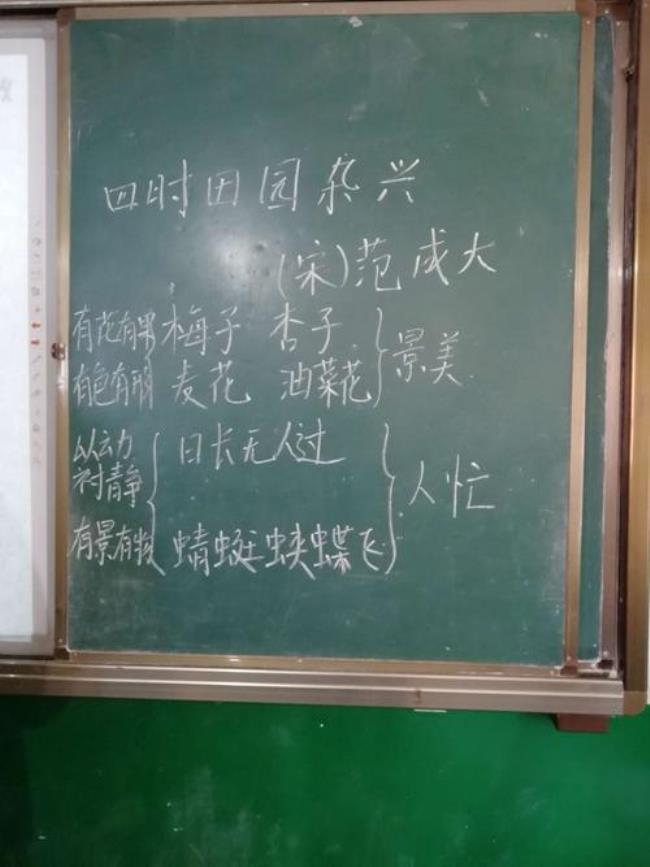 四时田园杂兴
(宋)范成大
有花有果 梅子 杏子
有色有形 麦花 油菜花 景美
以动衬静 日长无人过
人忙
有景有物 蜻蜓蛱蝶飞